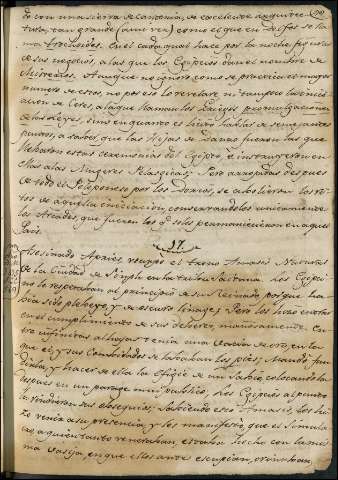 do con una sidra de canteria, de excelente arquitec
tura, tan grande (à mi ver) como el que en Delfos se lla
ma
de sus negocios, a los que los Egipcios dan el nombre de
Misterios. Aunque no ignoro como se practica el mayor
numero de estos, no por eso lo revelaré, ni tampoco la inici
acion de Ceres, a la que llaman los Griegos promulgaciones
de las Leyes, sino en quanto es licito hablar de semejantes
puntos, a saber, que las Hijas de Danao fueron las que
llevaron estas ceremonias del Egipto, e instruyeron en
ellas a las Mugeres Pelasgicas; Pero arrojados despues
de todo el Peloponeso por los Dorios, se abolieron los ri
tos de aquella iniciacion, conservandolos unicamente
los Arcades, que fueron los qe. solos permanecieron en aquel
Pais.
17.
Asesinado Apries ocupó el trono Amasis Natural
de la Ciudad de Siuph en la tribu Saitana. Los Egipci
no le respetaban al principio de su Reinado porque ha
bia sido plebeyo, y de escuro linage; Pero los hizo entrar
en el cumplimiento de sus deberes, mansamente. En
tre infinitas alhajas tenia una bacia de oro, en la
que el, y sus Combidados se lababan los pies; Mandó fun
dirla, y hacer de ella la efigie de un colocandola
despues en un parage mui publico. Los Egipcios al punto
le rendieron sus obsequios; Sabiendo esto Amasis, los hi
zo venir a su presencia, y les manifestó, que el Simula
cro a quien tanto veneraban, estaba hecho con la mis
ma vasija, en que ellos antes escupian, orinaban